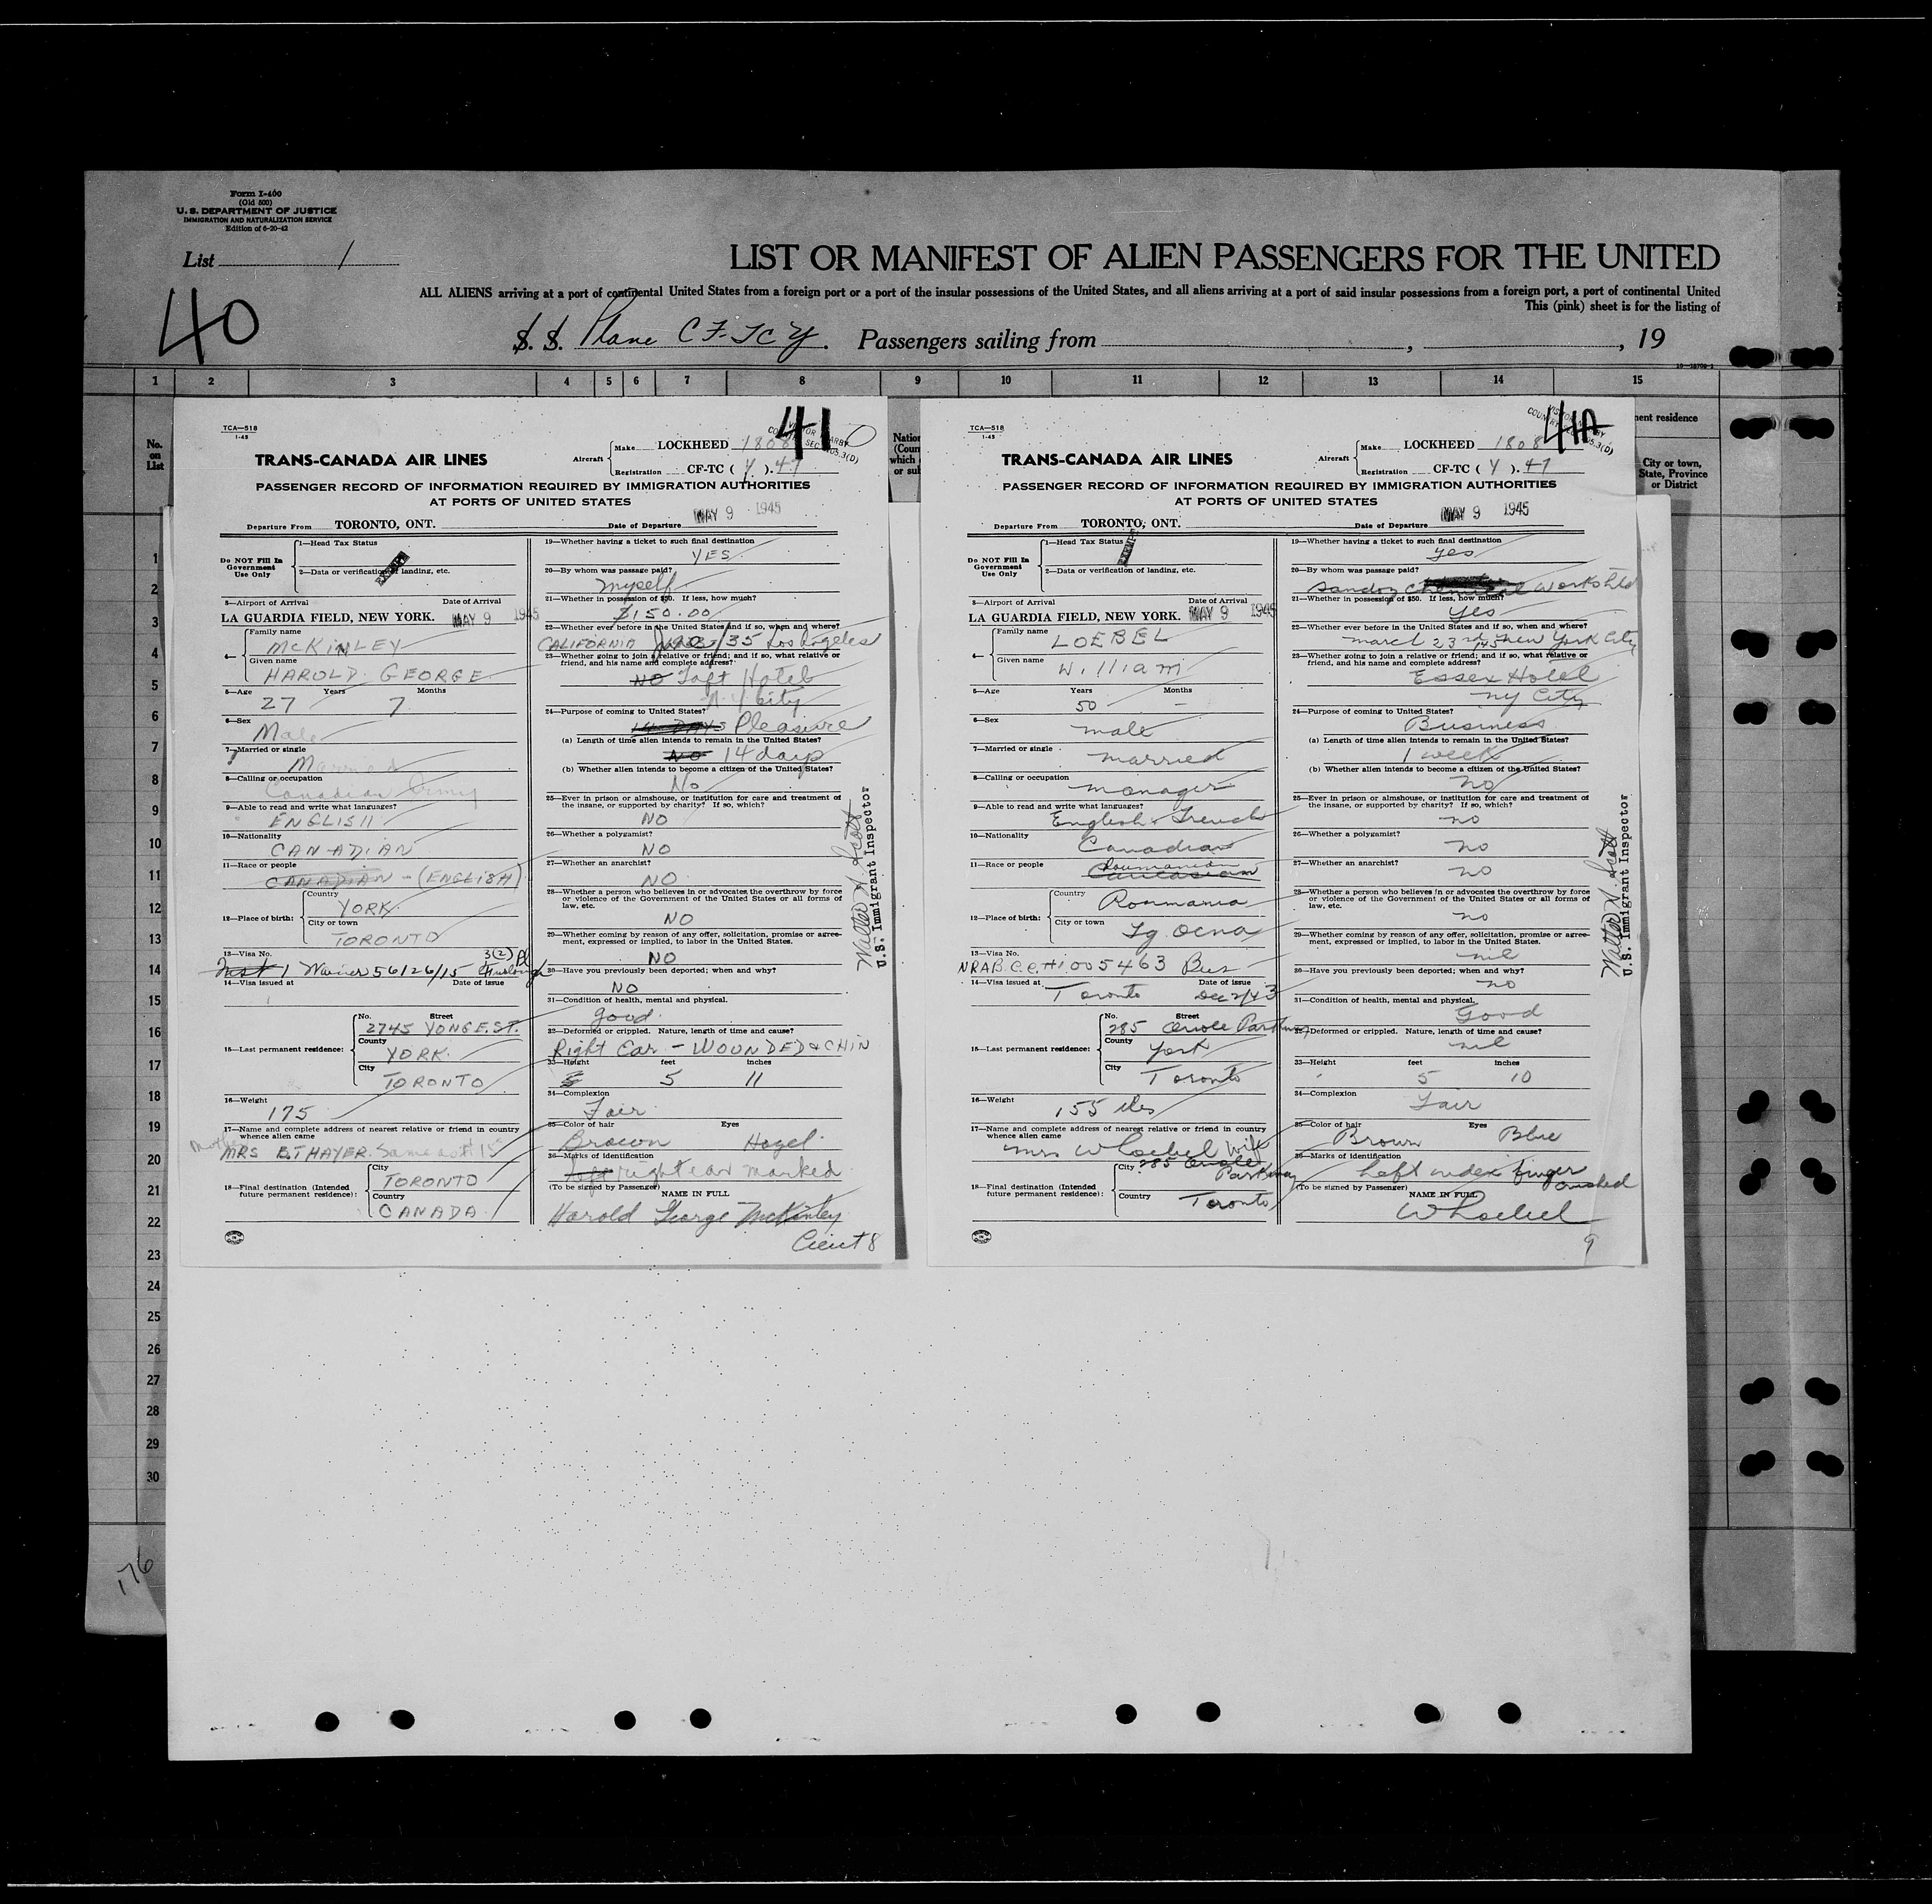 Form I-400
(Old 500)
U. S. DEPARTMENT OF JUSTICE
IMMIGRATION AND NATURALIZATION SERVICE
Edition of 6-20-42
List 1
40
LIST OR MANIFEST OF ALIEN PASSENGERS FOR THE UNITED
ALL ALIENS arriving at a port of continental United States from a foreign port or a port of the insular possessions of the United States, and all aliens arriving at a port of said insular possessions from a foreign port, a port of continental United
This (pink) sheet is for the listing of
S. S. Plane CF-TCY. Passengers sailing from , , 19
1 2 3 4 5 6 7 8 9 10 11 12 13 14 15
No. on List
ent residence
City or town, State, Province or District
TCA—518
1-45
41
TRANS-CANADA AIR LINES
Aircraft Make LOCKHEED 1808
Registration CF-TC ( Y ). 47
PASSENGER RECORD OF INFORMATION REQUIRED BY IMMIGRATION AUTHORITIES
AT PORTS OF UNITED STATES
Departure From TORONTO, ONT. Date of Departure MAY 9 1945
Do NOT Fill In Government Use Only
1—Head Tax Status
EXEMPT
2—Data or verification of landing, etc.
3—Airport of Arrival Date of Arrival
LA GUARDIA FIELD, NEW YORK. MAY 9 1945
4— Family name
McKINLEY
Given name
HAROLD GEORGE
5—Age Years Months
27 7
6—Sex
Male
7—Married or single
Married
8—Calling or occupation
Canadian Army
9—Able to read and write what languages?
ENGLISH
10—Nationality
CANADIAN
11—Race or people
CANADIAN - (ENGLISH)
12—Place of birth: Country
YORK
City or town
TORONTO
13—Visa No. 3(2) Pl
1 Waiver 56126/15 Furlough
14—Visa issued at Date of issue
15—Last permanent residence: No. Street
2745 YONGE ST.
County
YORK
City
TORONTO
16—Weight
175
17—Name and complete address of nearest relative or friend in country whence alien came
Mother
MRS B. THAYER. Same as # 15
18—Final destination (Intended future permanent residence): City
TORONTO
Country
CANADA
19—Whether having a ticket to such final destination
YES
20—By whom was passage paid?
Myself
21—Whether in possession of $50. If less, how much?
$150.00
22—Whether ever before in the United States and if so, when and where?
CALIFORNIA /35 Los Angeles
23—Whether going to join a relative or friend; and if so, what relative or friend, and his name and complete address?
NO Taft Hotel
N.Y City
24—Purpose of coming to United States?
14 DAYS Pleasure
(a) Length of time alien intends to remain in the United States?
NO 14 days
(b) Whether alien intends to become a citizen of the United States?
No
25—Ever in prison or almshouse, or institution for care and treatment of the insane, or supported by charity? If so, which?
NO
26—Whether a polygamist?
NO
27—Whether an anarchist?
NO
28—Whether a person who believes in or advocates the overthrow by force or violence of the Government of the United States or all forms of law, etc.
NO
29—Whether coming by reason of any offer, solicitation, promise or agreement, expressed or implied, to labor in the United States.
NO
30—Have you previously been deported; when and why?
NO
31—Condition of health, mental and physical.
Good.
32—Deformed or crippled. Nature, length of time and cause?
Right Ear - WOUNDED & CHIN
33—Height feet inches
5 11
34—Complexion
Fair
35—Color of hair Eyes
Brown Hazel
36—Marks of identification
left right ear marked
(To be signed by Passenger) NAME IN FULL
Harold George McKinley
8
Walter N. Scott
U.S. Immigrant Inspector
TCA—518
1-45
41A
TRANS-CANADA AIR LINES
Aircraft Make LOCKHEED 1808
Registration CF-TC ( Y ). 47
PASSENGER RECORD OF INFORMATION REQUIRED BY IMMIGRATION AUTHORITIES
AT PORTS OF UNITED STATES
Departure From TORONTO, ONT. Date of Departure MAY 9 1945
Do NOT Fill In Government Use Only
1—Head Tax Status
EXEMPT
2—Data or verification of landing, etc.
3—Airport of Arrival Date of Arrival
LA GUARDIA FIELD, NEW YORK. MAY 9 1945
4— Family name
LOEBEL
Given name
William
5—Age Years Months
50 -
6—Sex
male
7—Married or single
married
8—Calling or occupation
manager
9—Able to read and write what languages?
English & French
10—Nationality
Canadian
11—Race or people
Roumanian
Caucasian
12—Place of birth: Country
Roumania
City or town
Tg. Ocna
13—Visa No.
NRAB.C.C.#1005463 Bus
14—Visa issued at Date of issue
Toronto Dec 2/43
15—Last permanent residence: No. Street
285 Oriole Parkway
County
York
City
Toronto
16—Weight
155 lbs
17—Name and complete address of nearest relative or friend in country whence alien came
Mrs W Loebel Wife
18—Final destination (Intended future permanent residence): City
285 Oriole Parkway
Country
Toronto
19—Whether having a ticket to such final destination
yes
20—By whom was passage paid?
Sandoz Chemical Works Ltd
21—Whether in possession of $50. If less, how much?
Yes
22—Whether ever before in the United States and if so, when and where?
March 23rd /45 New York City
23—Whether going to join a relative or friend; and if so, what relative or friend, and his name and complete address?
Essex Hotel
NY City
24—Purpose of coming to United States?
Business
(a) Length of time alien intends to remain in the United States?
1 week
(b) Whether alien intends to become a citizen of the United States?
no
25—Ever in prison or almshouse, or institution for care and treatment of the insane, or supported by charity? If so, which?
no
26—Whether a polygamist?
no
27—Whether an anarchist?
no
28—Whether a person who believes in or advocates the overthrow by force or violence of the Government of the United States or all forms of law, etc.
no
29—Whether coming by reason of any offer, solicitation, promise or agreement, expressed or implied, to labor in the United States.
nil
30—Have you previously been deported; when and why?
no
31—Condition of health, mental and physical.
Good
32—Deformed or crippled. Nature, length of time and cause?
nil
33—Height feet inches
5 10
34—Complexion
Fair
35—Color of hair Eyes
Brown Blue
36—Marks of identification
Left index finger crushed
(To be signed by Passenger) NAME IN FULL
W Loebel
9
Walter N. Scott
U.S. Immigrant Inspector
1
2
3
4
5
6
7
8
9
10
11
12
13
14
15
16
17
18
19
20
21
22
23
24
25
26
27
28
29
30
176